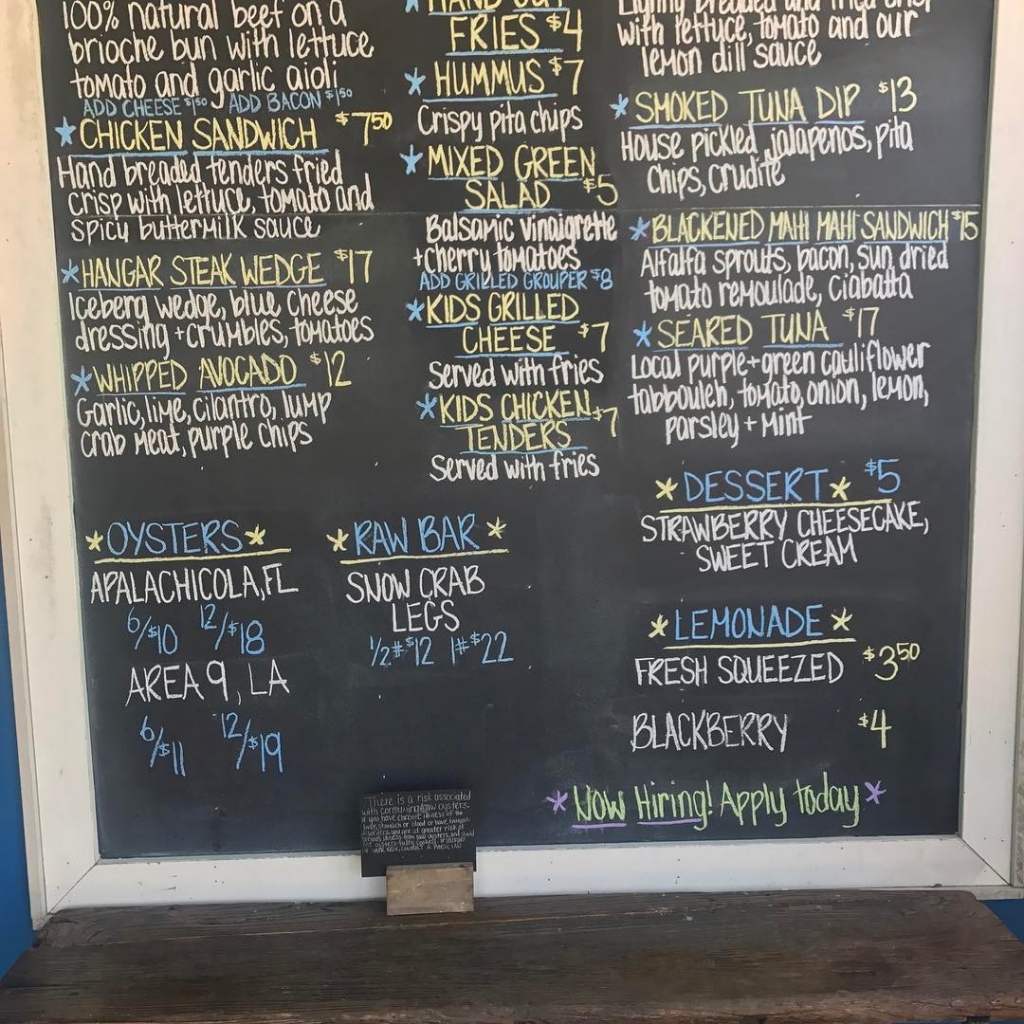 100% natural beef on a
brioche bun with lettuce
tomato and garlic aioli
ADD CHEESE $1.50 ADD BACON $1.50
CHICKEN SANDWICH $7.50
Hand breaded tenders fried
crisp with lettuce, tomato and
spicy buttermilk sauce
HANGAR STEAK WEDGE $17
Iceberg wedge, blue cheese
dressing + crumbles, tomatoes
WHIPPED AVOCADO $12
Garlic, lime, cilantro, lump
crab meat, purple chips
HAND CUT
FRIES $4
HUMMUS $7
Crispy pita chips
MIXED GREEN
SALAD $5
Balsamic vinaigrette
+ cherry tomatoes
ADD GRILLED GROUPER $8
KIDS GRILLED
CHEESE $7
Served with fries
KIDS CHICKEN $7
TENDERS
Served with fries
Lightly breaded and fried crisp
with lettuce, tomato and our
lemon dill sauce
SMOKED TUNA DIP $13
House pickled jalapenos, pita
chips, crudite
BLACKENED MAHI MAHI SANDWICH $15
Alfalfa sprouts, bacon, sun dried
tomato remoulade, ciabatta
SEARED TUNA $17
Local purple + green cauliflower
tabbouleh, tomato, onion, lemon,
parsley + mint
OYSTERS
APALACHICOLA, FL
6/$10 12/$18
AREA 9, LA
6/$11 12/$19
RAW BAR
SNOW CRAB
LEGS
1/2# $12 1# $22
DESSERT $5
STRAWBERRY CHEESECAKE,
SWEET CREAM
LEMONADE
FRESH SQUEEZED $3.50
BLACKBERRY $4
Now Hiring! Apply today
There is a risk associated
with consuming raw oysters.